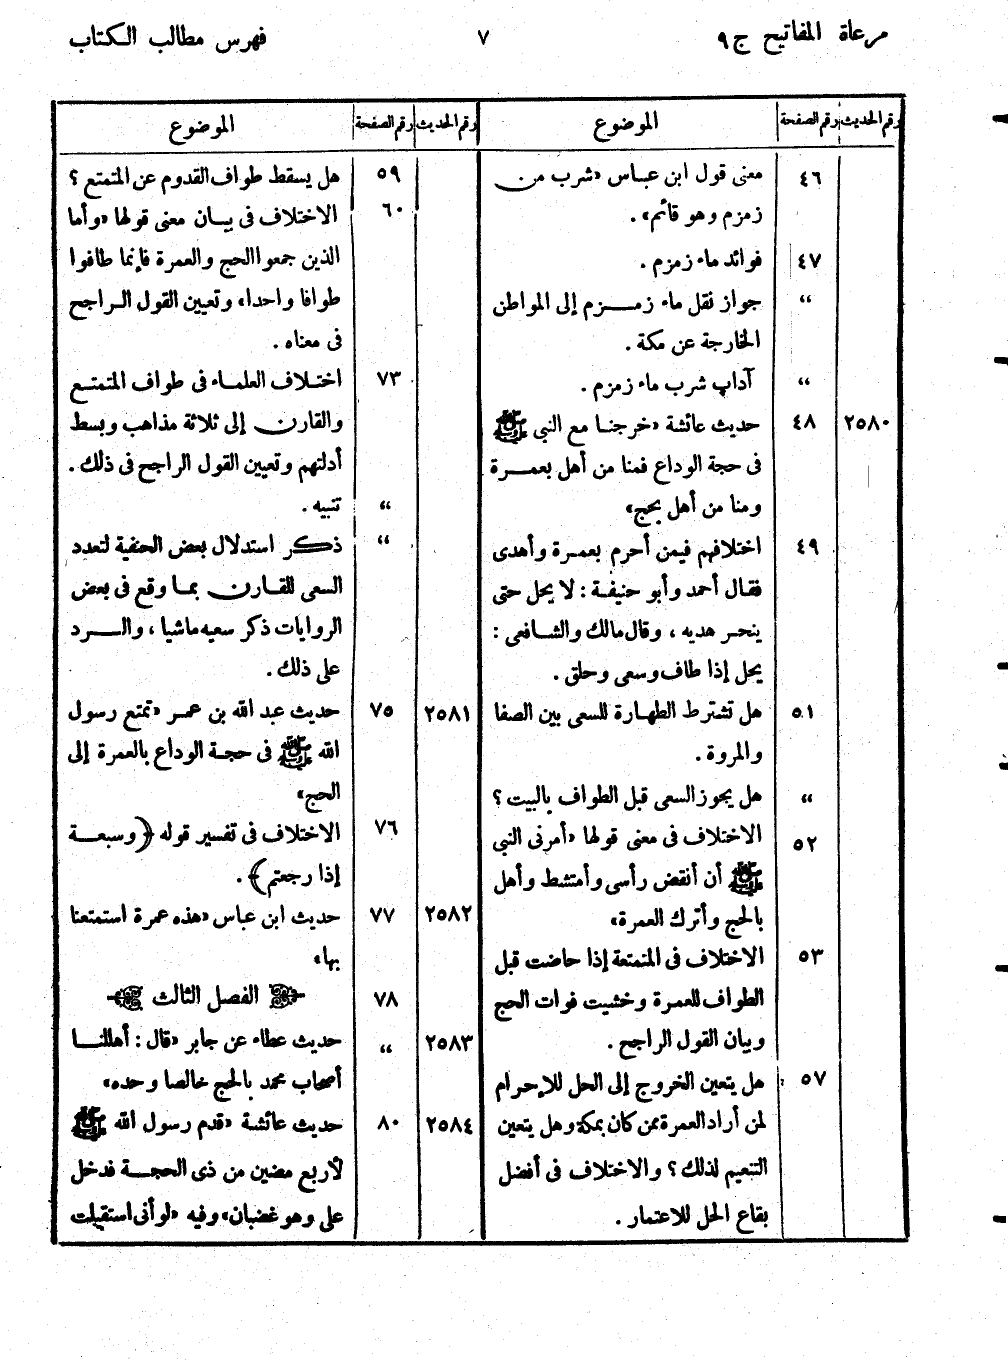 مرعاة المفاتيح ج ٩
٧
فهرس مطالب الكتاب
رقم الحديث رقم الصفحة الموضوع
٤٦ معنى قول ابن عباس «شرب من
زمزم وهو قائم» .
٤٧ فوائد ماء زمزم .
“ جواز نقل ماء زمزم إلى المواطن
الخارجة عن مكة .
“ آداب شرب ماء زمزم .
٢٥٨٠ ٤٨ حديث عائشة «خرجنا مع النبي ﷺ
فى حجة الوداع فمنا من أهل بعمرة
ومنا من أهل بحج»
٤٩ اختلافهم فيمن أحرم بعمرة وأهدى
فقال أحمد وأبو حنيفة : لا يحل حتى
ينحر هديه ، وقال مالك والشافعى :
يحل إذا طاف وسعى وحلق .
٥١ هل تشترط الطهارة للسعى بين الصفا
والمروة .
“ هل يجوز السعى قبل الطواف بالبيت ؟
٥٢ الاختلاف فى معنى قولها «أمرنى النبى
ﷺ أن أنقض رأسى وأمتشط وأهل
بالحج وأترك العمرة»
٥٣ الاختلاف فى المتمتعة إذا حاضت قبل
الطواف للعمرة وخشيت فوات الحج
وبيان القول الراجح .
٥٧ هل يتعين الخروج إلى الحل للإحرام
لمن أراد العمرة ممن كان بمكة وهل يتعين
التنعيم لذلك ؟ والاختلاف فى أفضل
بقاع الحل للاعتمار .
رقم الحديث رقم الصفحة الموضوع
٥٩ هل يسقط طواف القدوم عن المتمتع ؟
٦٠ الاختلاف فى بيان معنى قولها «وأما
الذين جمعوا الحج والعمرة فإنما طافوا
طوافا واحدا» وتعيين القول الراجح
فى معناه .
٧٣ اختلاف العلماء فى طواف المتمتع
والقارن إلى ثلاثة مذاهب وبسط
أدلتهم وتعيين القول الراجح فى ذلك .
“ تنبيه .
“ ذكر استدلال بعض الحنفية لتعدد
السعى للقارن بما وقع فى بعض
الروايات ذكر سعيه ماشيا ، والرد
على ذلك .
٢٥٨١ ٧٥ حديث عبد الله بن عمر «تمتع رسول
الله ﷺ فى حجة الوداع بالعمرة إلى
الحج»
٧٦ الاختلاف فى تفسير قوله ﴿وسبعة
إذا رجعتم﴾ .
٢٥٨٢ ٧٧ حديث ابن عباس «هذه عمرة استمتعنا
بها»
٧٨ الفصل الثالث
٢٥٨٣ “ حديث عطاء عن جابر «قال : أهللنا
أصحاب محمد بالحج خالصا وحده»
٢٥٨٤ ٨٠ حديث عائشة «قدم رسول الله ﷺ
لأربع مضين من ذى الحجة فدخل
على وهو غضبان» وفيه «لو أنى استقبلت